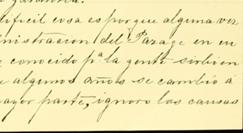 dificil cosa es porque alguna vez
ministracion del Parage en cu
conocido pª la gente
e algunos años se cambió á
mayor parte, ignoro las causas